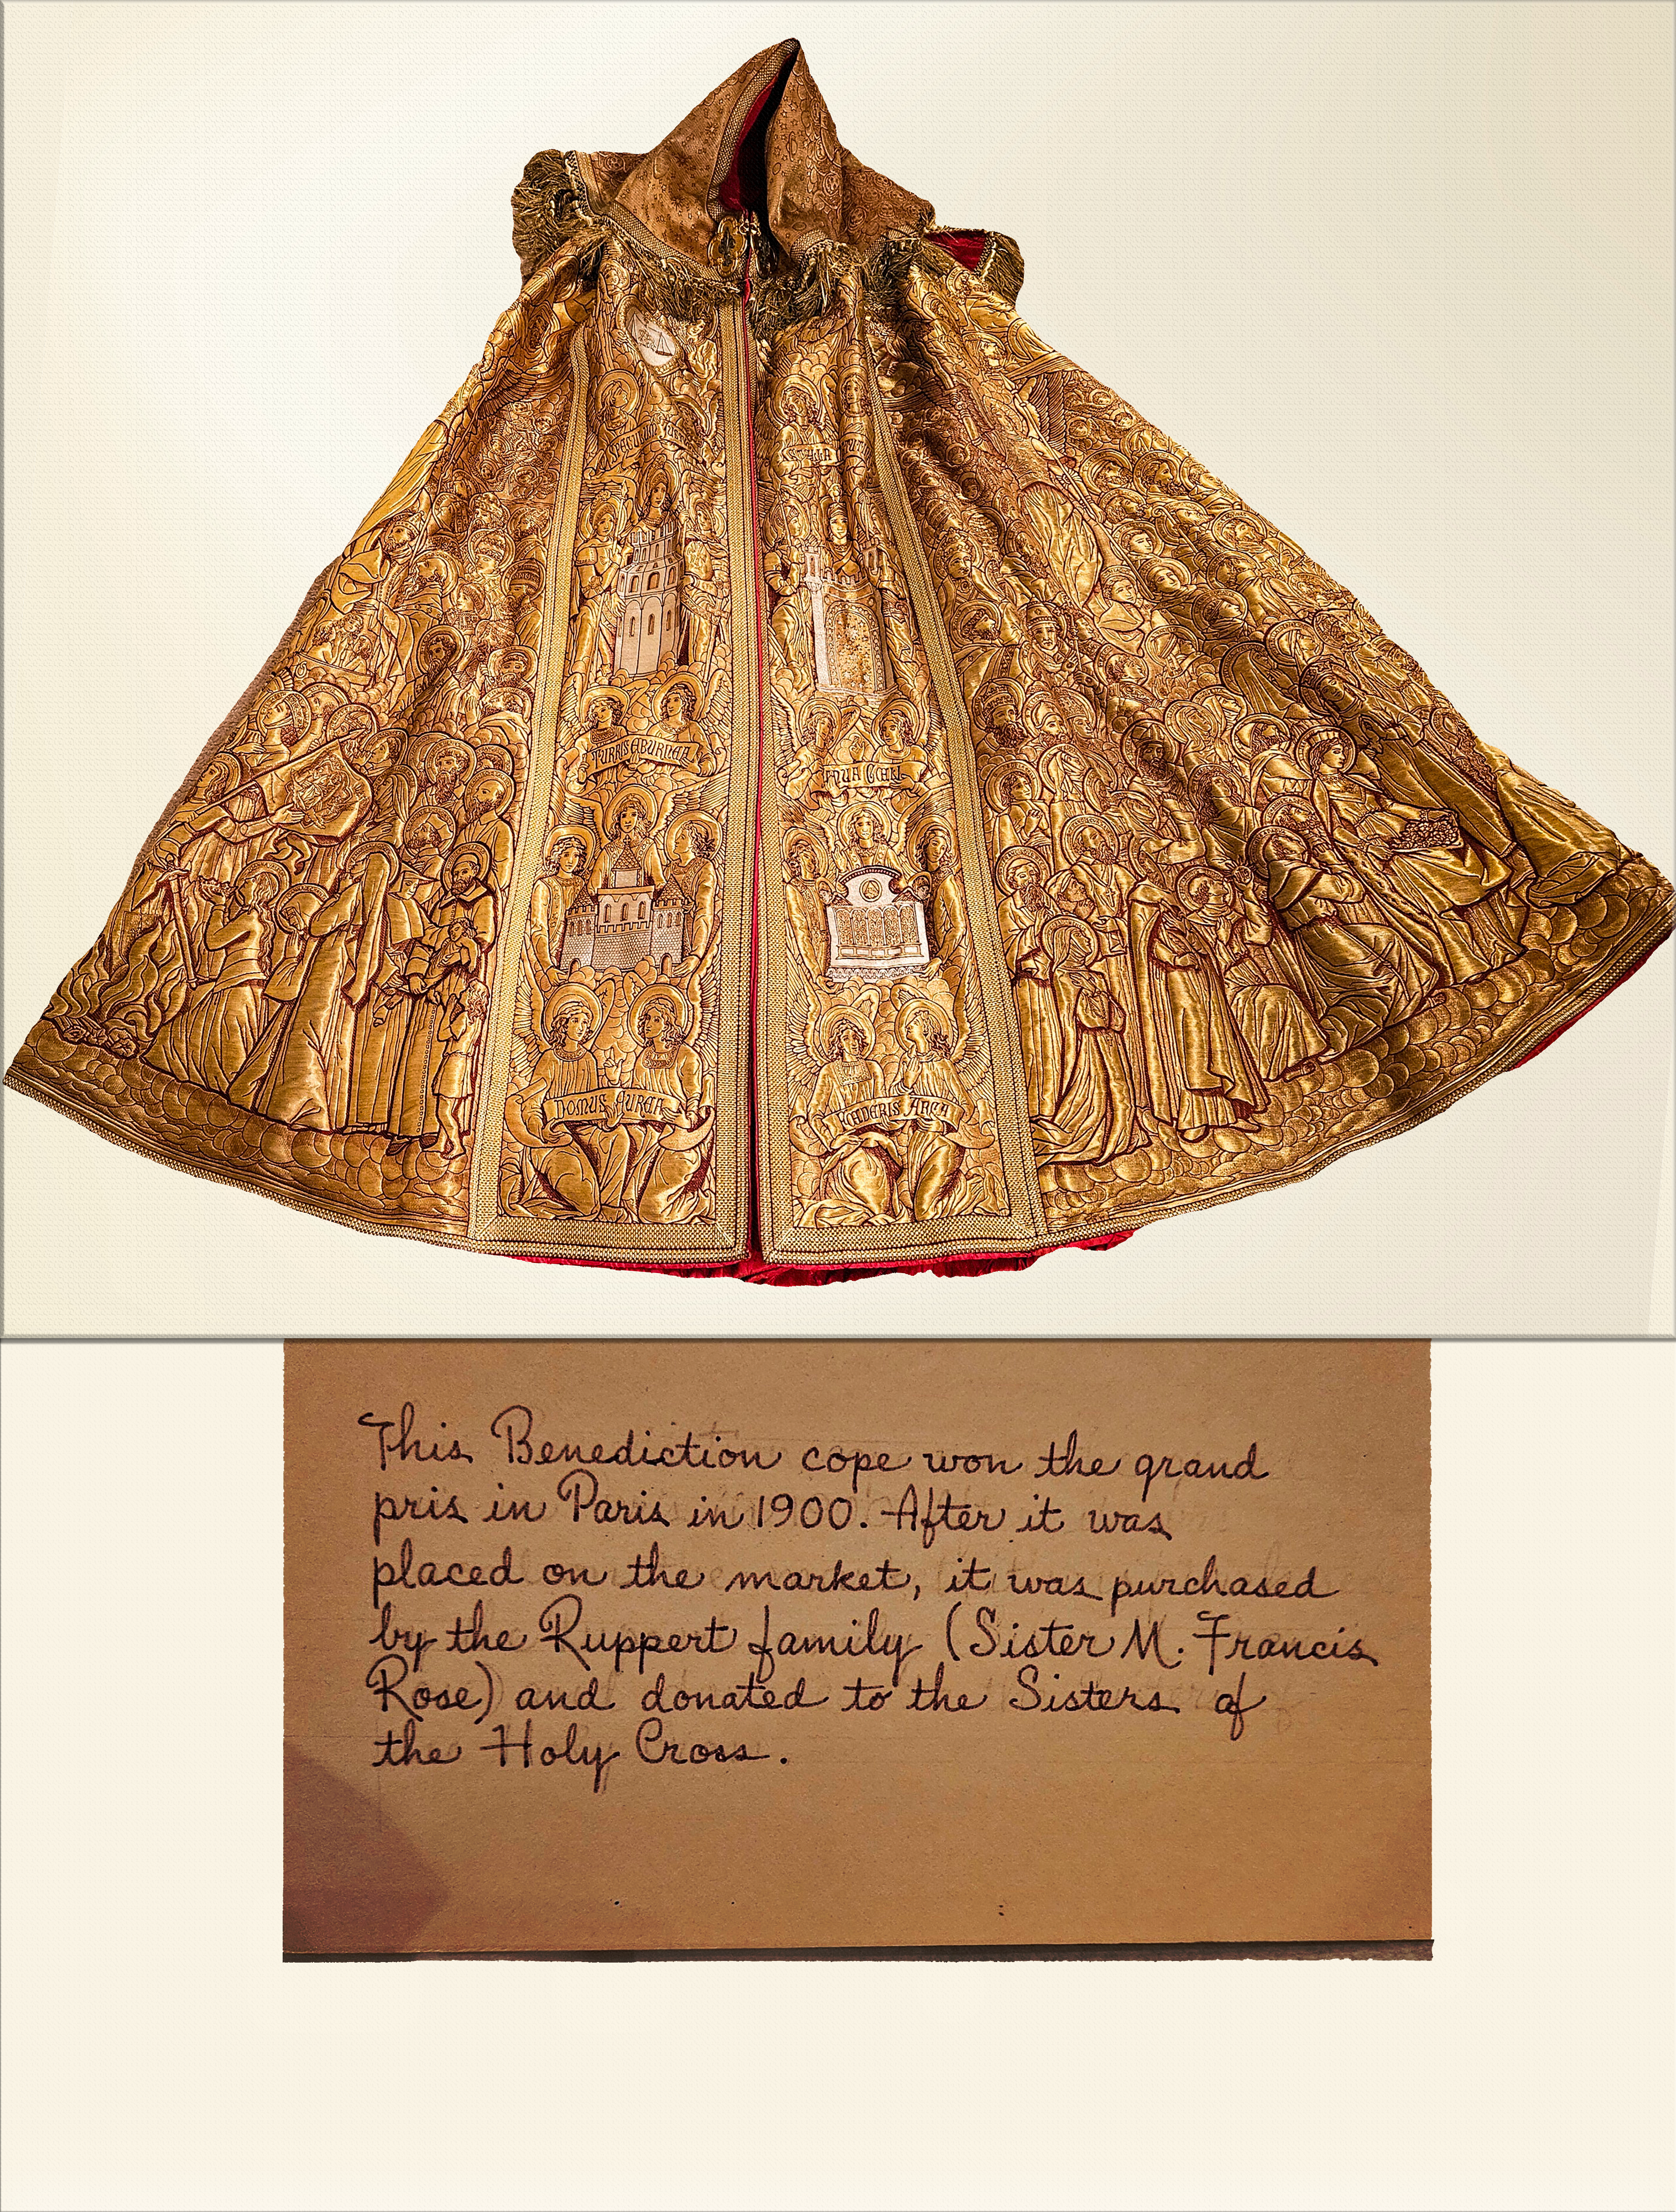 TURRIS EBURNEA
DOMUS AUREA
FOEDERIS ARCA
This Benediction cope won the grand
pris in Paris in 1900. After it was
placed on the market, it was purchased
by the Ruppert family (Sister M. Francis
Rose) and donated to the Sisters of
the Holy Cross.